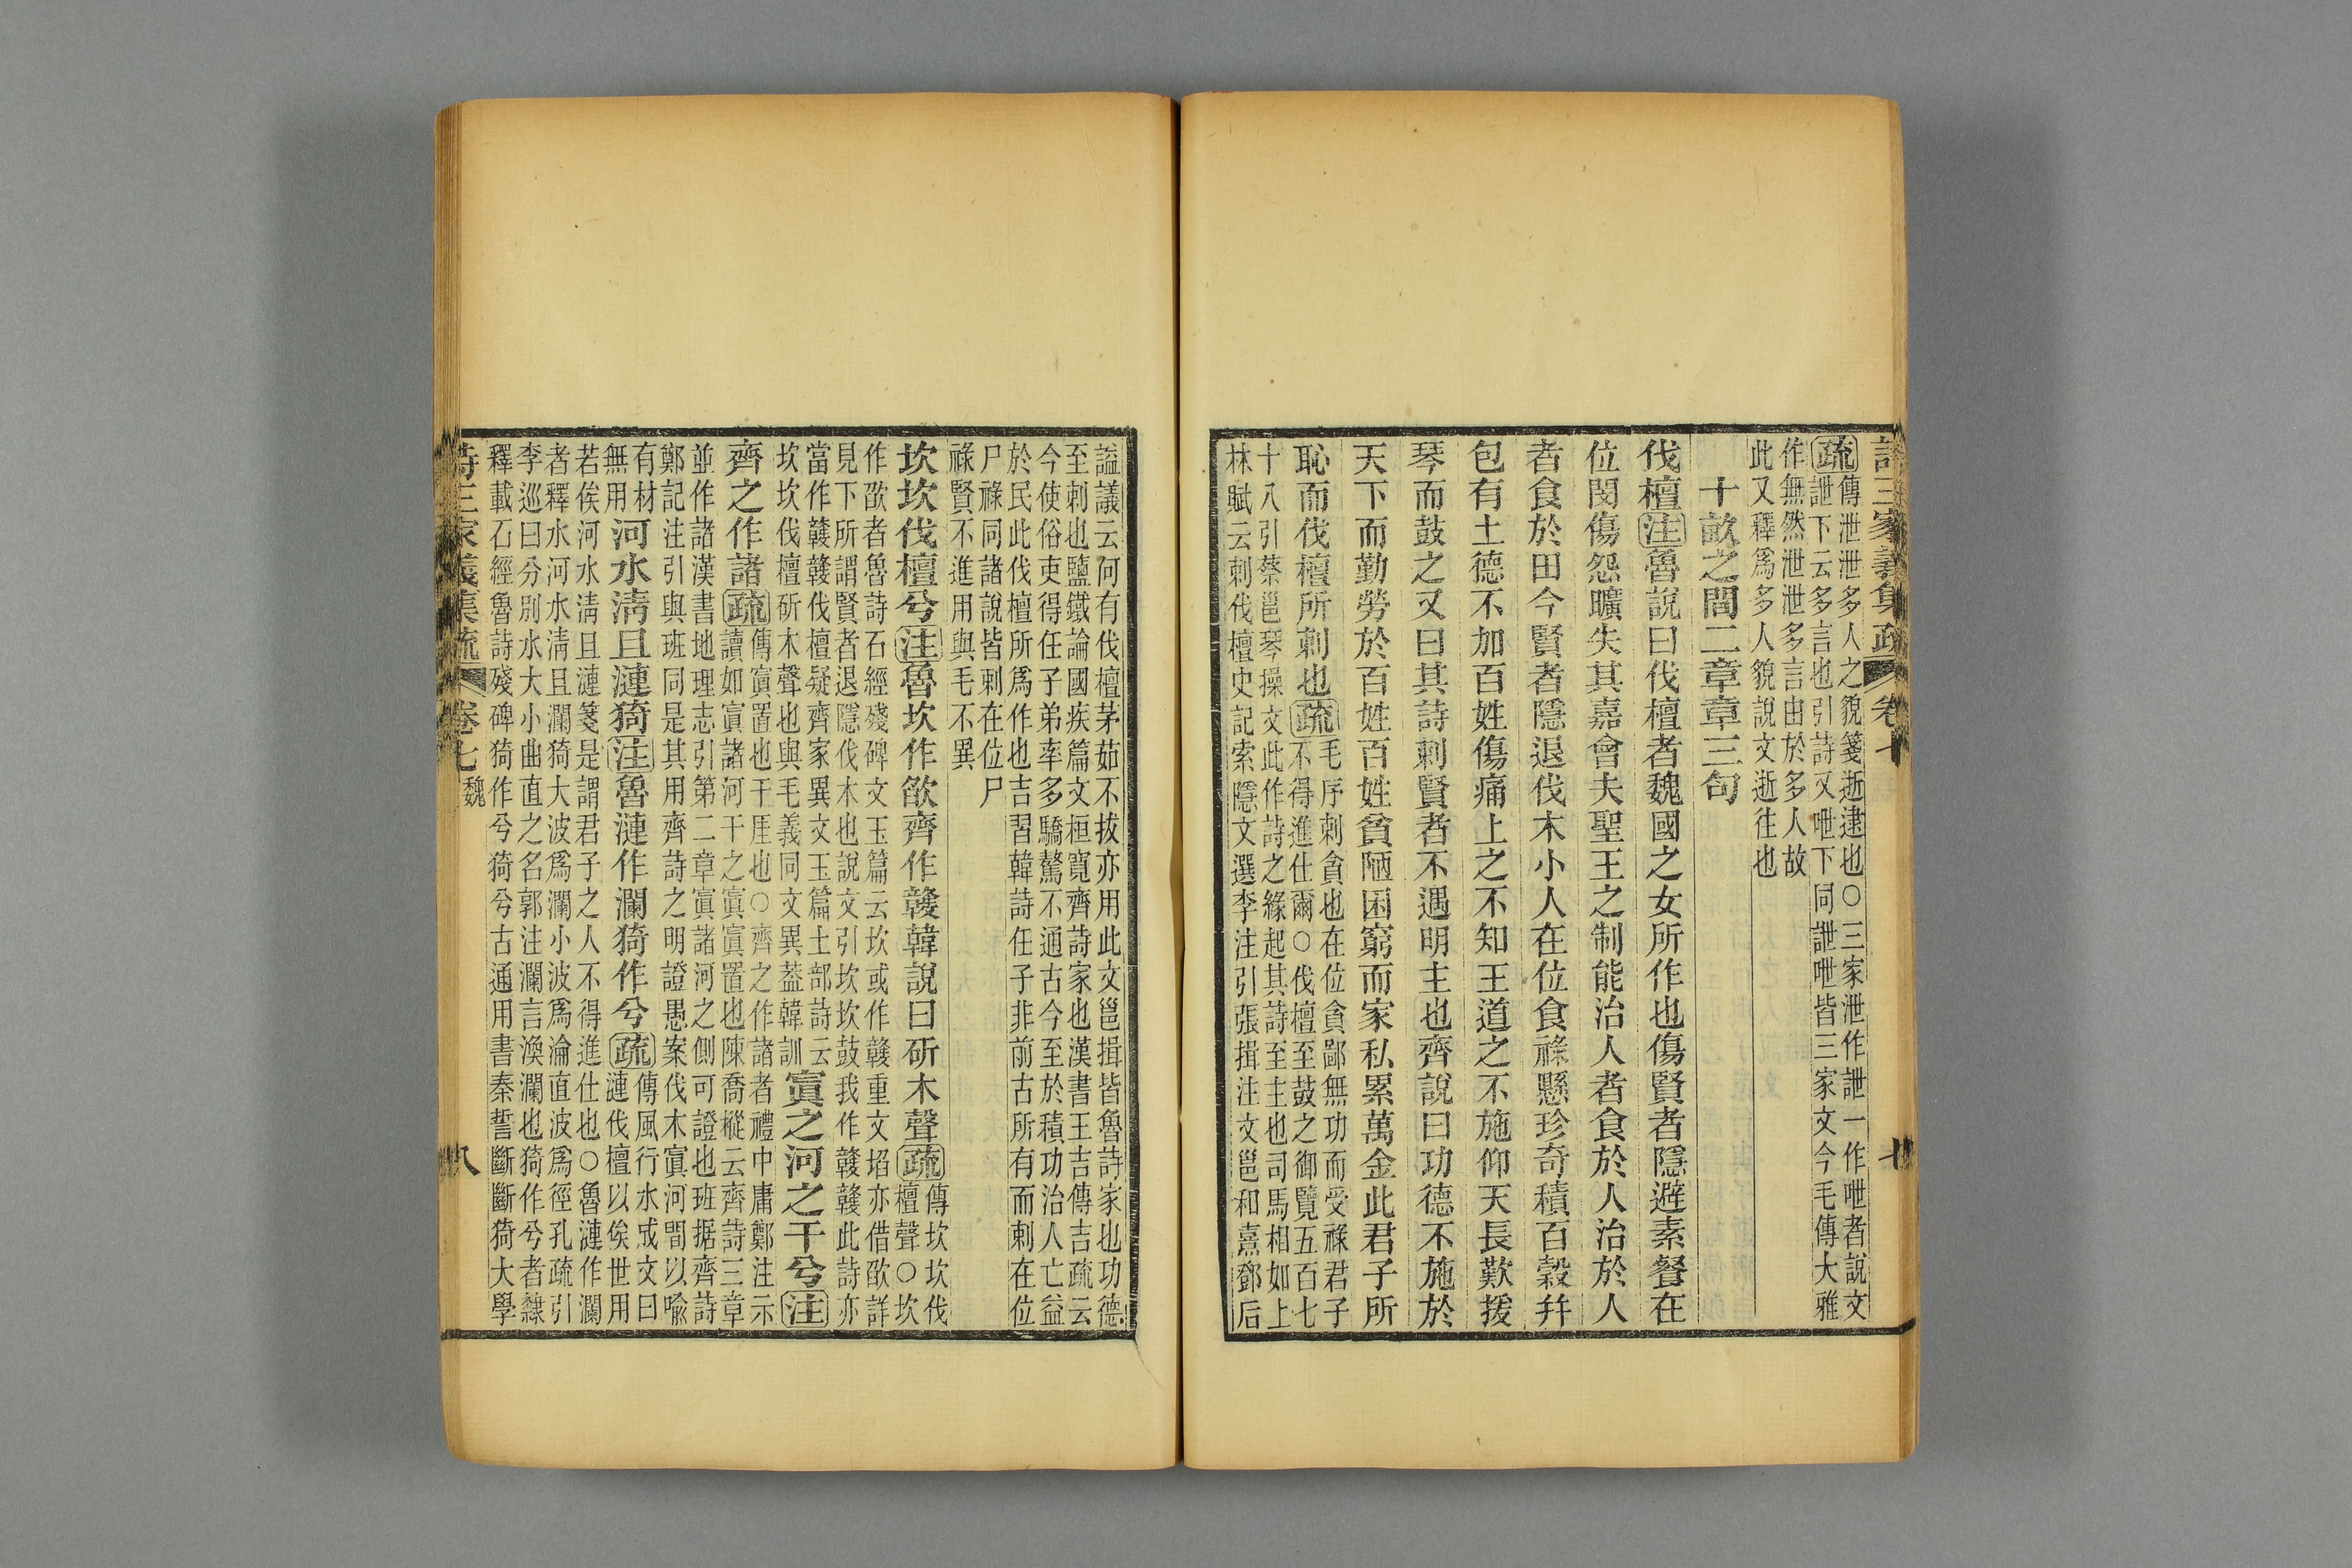 詩三家義集疏 卷七 七
疏傳泄泄多人之貌箋逝逮也○三家泄作詍一作呭者說文
詍下云多言也引詩又呭下同詍呭皆三家文今毛傳大雅
作無然泄泄多言由於多人故
此又釋爲多人貌說文逝往也
十畝之閒二章章三句
伐檀注魯說曰伐檀者魏國之女所作也傷賢者隱避素餐在
位閔傷怨曠失其嘉會夫聖王之制能治人者食於人治於人
者食於田今賢者隱退伐木小人在位食祿懸珍奇積百穀幷
包有土德不加百姓傷痛上之不知王道之不施仰天長歎援
琴而鼓之又曰其詩刺賢者不遇明主也齊說曰功德不施於
天下而勤勞於百姓百姓貧陋困窮而家私累萬金此君子所
恥而伐檀所刺也疏毛序刺貪也在位貪鄙無功而受祿君子
不得進仕爾○伐檀至鼓之御覽五百七
十八引蔡邕琴操文此作詩之緣起其詩至主也司馬相如上
林賦云刺伐檀史記索隱文選李注引張揖注文邕和熹鄧后
謚議云何有伐檀茅茹不拔亦用此文邕揖皆魯詩家也功德
至刺也鹽鐵論國疾篇文桓寬齊詩家也漢書王吉傳吉疏云
今使俗吏得任子弟率多驕驁不通古今至於積功治人亡益
於民此伐檀所爲作也吉習韓詩任子非前古所有而刺在位
尸祿同諸說皆刺在位尸
祿賢不進用與毛不異
坎坎伐檀兮注魯坎作欿齊作竷韓說曰斫木聲疏傳坎坎伐
檀聲○坎
作欿者魯詩石經殘碑文玉篇云坎或作竷重文埳亦借欿詳
見下所謂賢者退隱伐木也說文引坎坎鼓我作竷竷此詩亦
當作竷竷伐檀疑齊家異文玉篇土部詩云
坎坎伐檀斫木聲也與毛義同文異葢韓訓寘之河之干兮注
齊之作諸疏傳寘置也干厓也○齊之作諸者禮中庸鄭注示
讀如寘諸河干之寘寘置也陳喬樅云齊詩三章
並作諸漢書地理志引第二章寘諸河之側可證也班据齊詩
鄭記注引與班同是其用齊詩之明證愚案伐木寘河間以喩
有材
無用河水淸且漣猗注魯漣作瀾猗作兮疏傳風行水成文曰
漣伐檀以俟世用
若俟河水淸且漣箋是謂君子之人不得進仕也○魯漣作瀾
者釋水河水淸且瀾猗大波爲瀾小波爲淪直波爲徑孔疏引
李巡曰分別水大小曲直之名郭注瀾言渙瀾也猗作兮者隸
釋載石經魯詩殘碑猗作兮猗兮古通用書秦誓斷斷猗大學
詩三家義集疏 卷七 魏 八